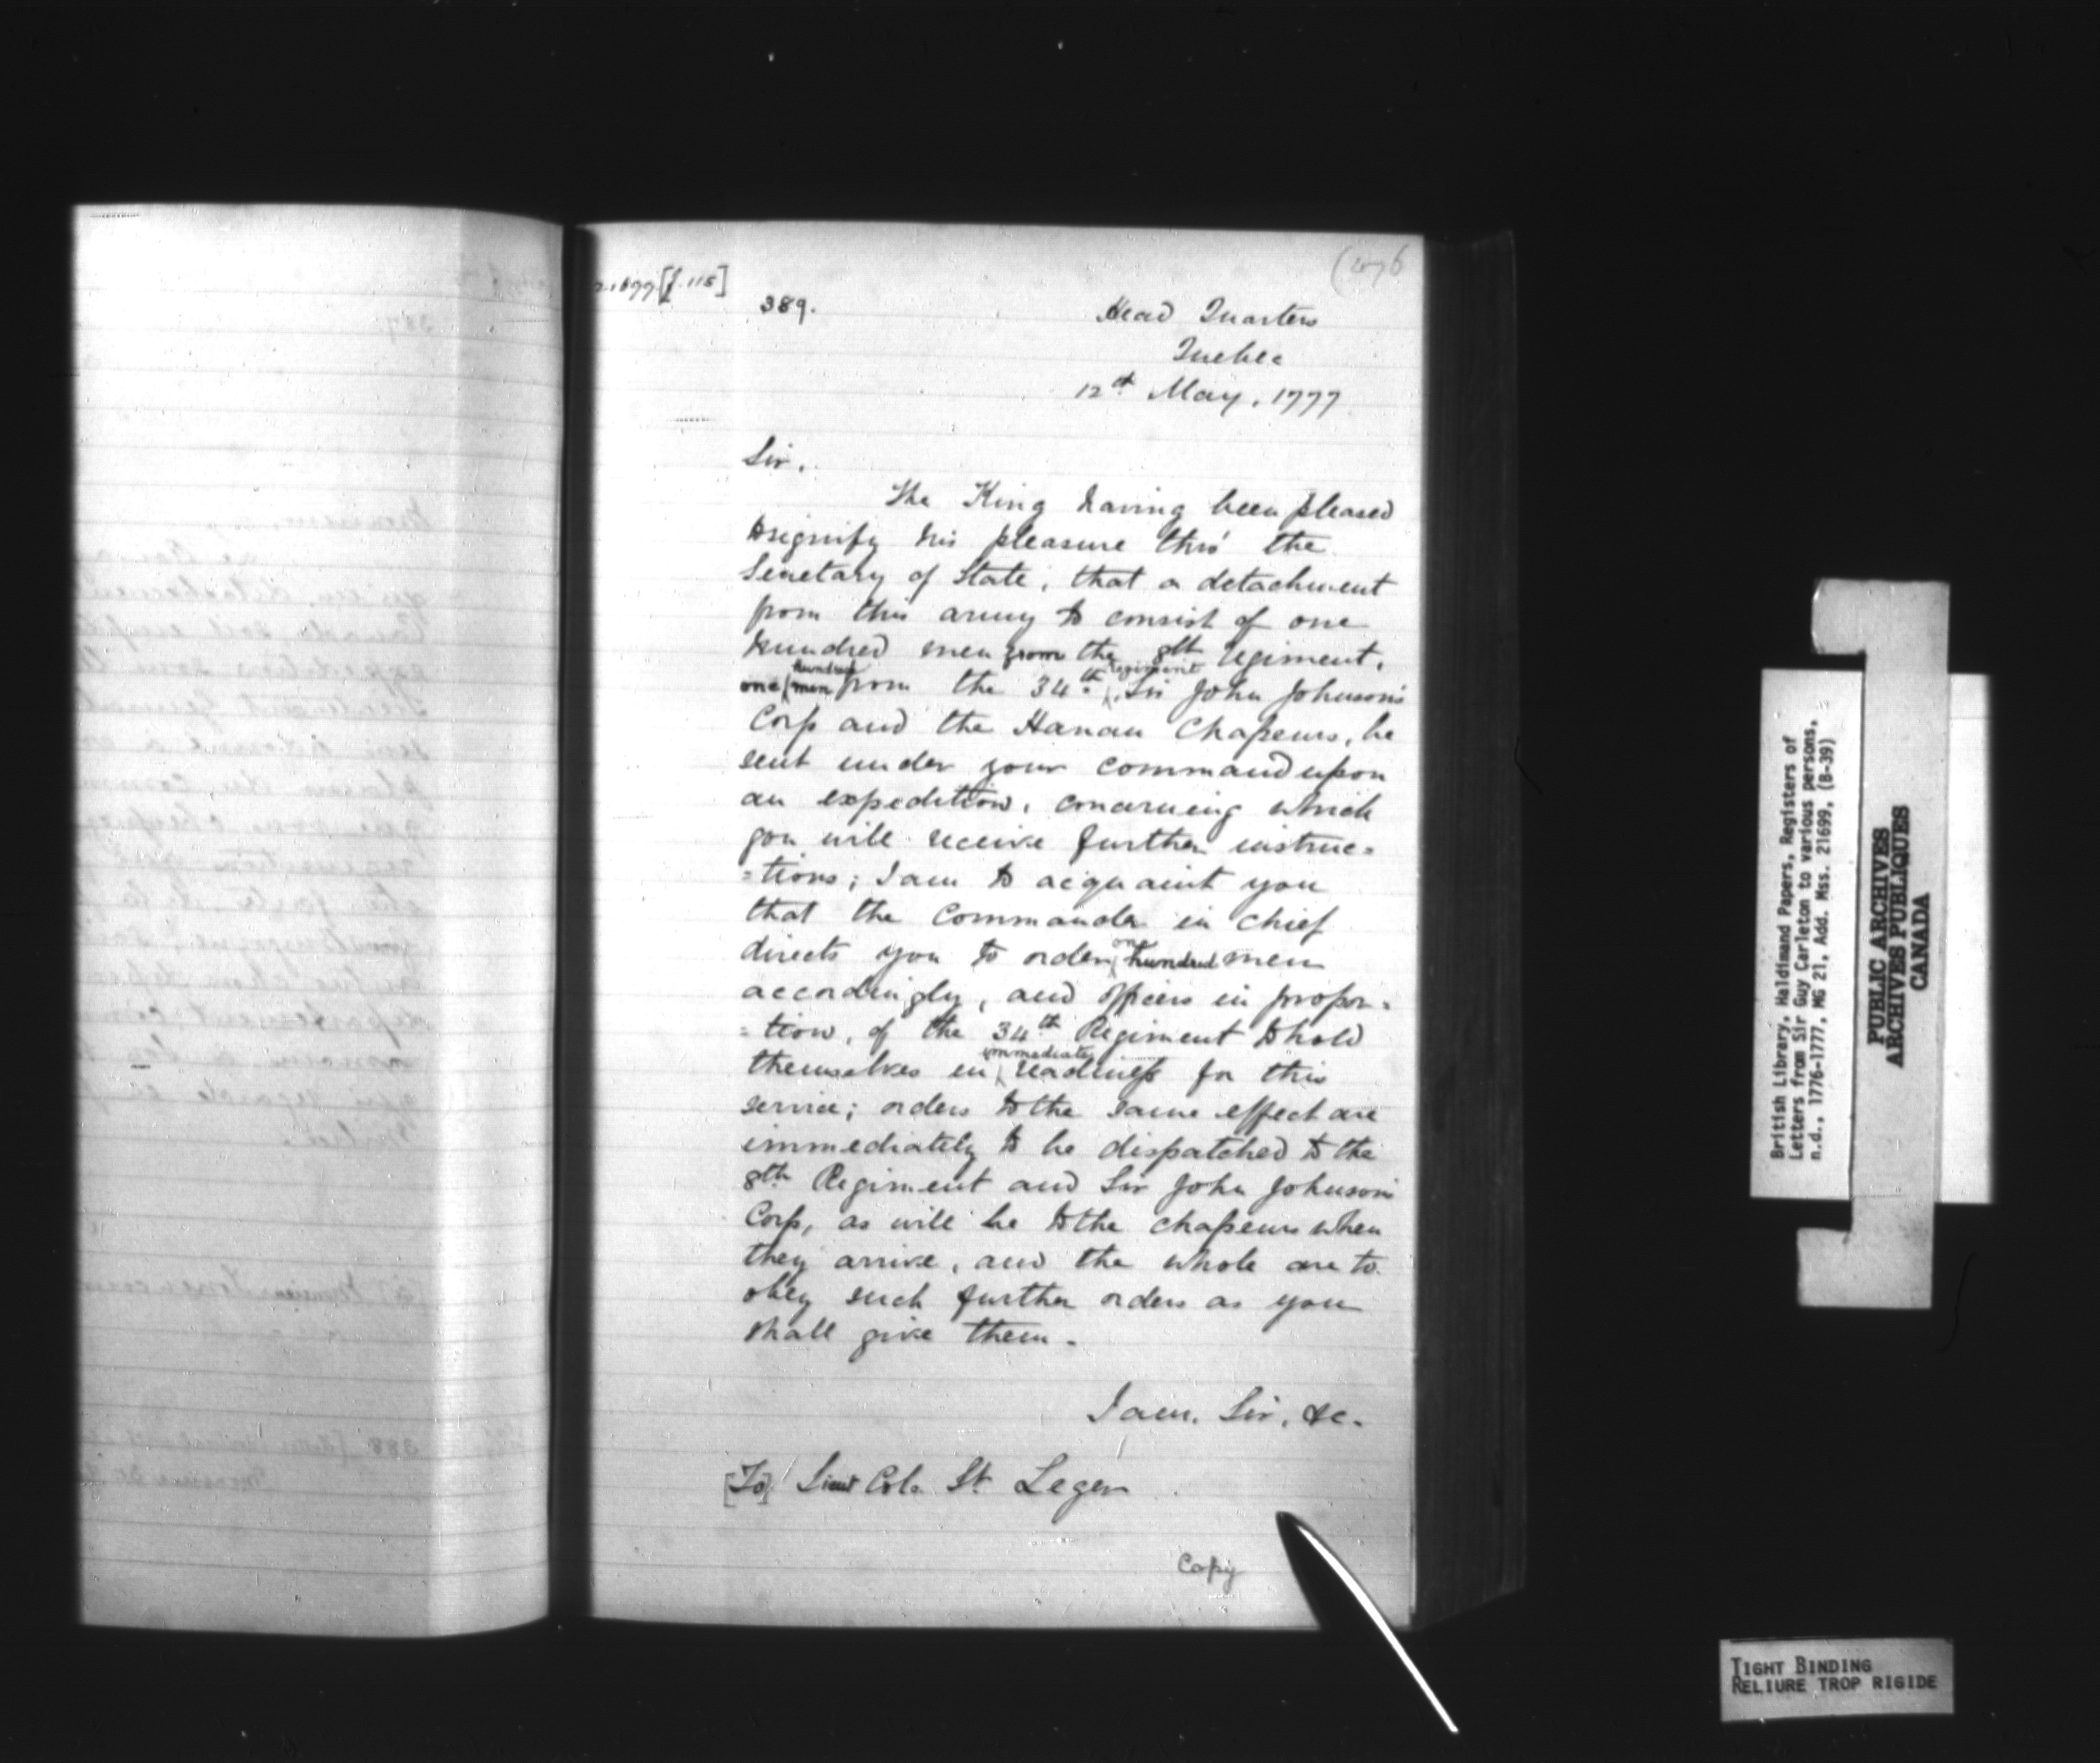 [f. 115]
389.
Head Quarters
Quebec
12th May, 1777
Sir,
The King having been pleased
to signify his pleasure thro' the
Secretary of State, that a detachment
from this army to consist of one
hundred men from the 8th regiment,
one hundred men from the 34th regiment, Sir John Johnson's
Corps and the Hanau Chasseurs, be
sent under your command upon
an expedition, concerning which
you will receive further instruc=
=tions; I am to acquaint you
that the Commander in Chief
directs you to order one hundred men
accordingly, and officers in propor=
=tion, of the 34th Regiment to hold
themselves in immediate readiness for this
service; orders to the same effect are
immediately to be dispatched to the
8th Regiment and Sir John Johnson's
Corps, as will be to the chasseurs when
they arrive, and the whole are to
obey such further orders as you
shall give them.
I am, Sir, &c.
[To] Lieut Col. St. Leger
Copy
British Library, Haldimand Papers, Registers of
Letters from Sir Guy Carleton to various persons,
n.d., 1776-1777, MG 21, Add. Mss. 21699, (B-39)
PUBLIC ARCHIVES
ARCHIVES PUBLIQUES
CANADA
TIGHT BINDING
RELIURE TROP RIGIDE